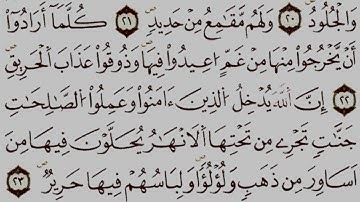 وَالْجُلُودُ ۝٢٠ وَلَهُم مَّقَٰمِعُ مِنْ حَدِيدٍ ۝٢١ كُلَّمَآ أَرَادُوٓا۟
أَن يَخْرُجُوا۟ مِنْهَا مِنْ غَمٍّ اُعِيدُوا۟ فِيهَا وَذُوقُوا۟ عَذَابَ اَ۬لْحَرِيقِ
۝٢٢ إِنَّ اَ۬للَّهَ يُدْخِلُ اُ۬لذِينَ ءَامَنُوا۟ وَعَمِلُوا۟ اُ۬لصَّٰلِحَٰتِ
جَنَّٰتٍ تَجْرِے مِن تَحْتِهَا اَ۬لَانْهَٰرُ يُحَلَّوْنَ فِيهَا مِنَ
اَسَاوِرَ مِن ذَهَبٍ وَلُؤْلُؤاً وَلِبَاسُهُمْ فِيهَا حَرِيرٌ ۝٢٣